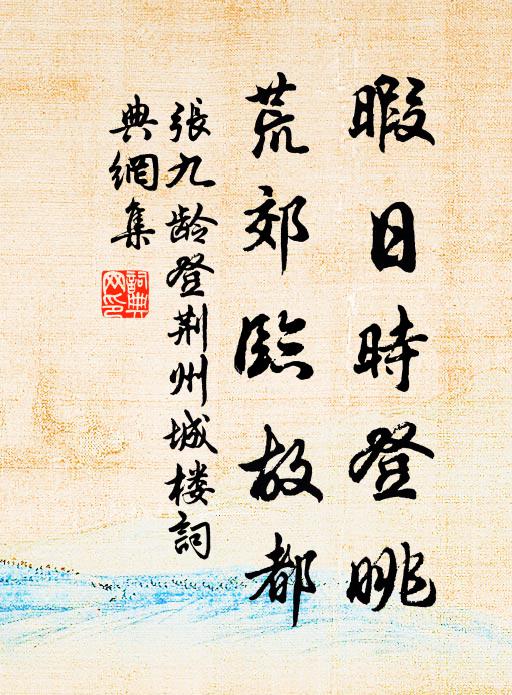 暇日時登眺
荒郊臨故都
張九龄登荆州城楼詞
典網集
詞典
网印